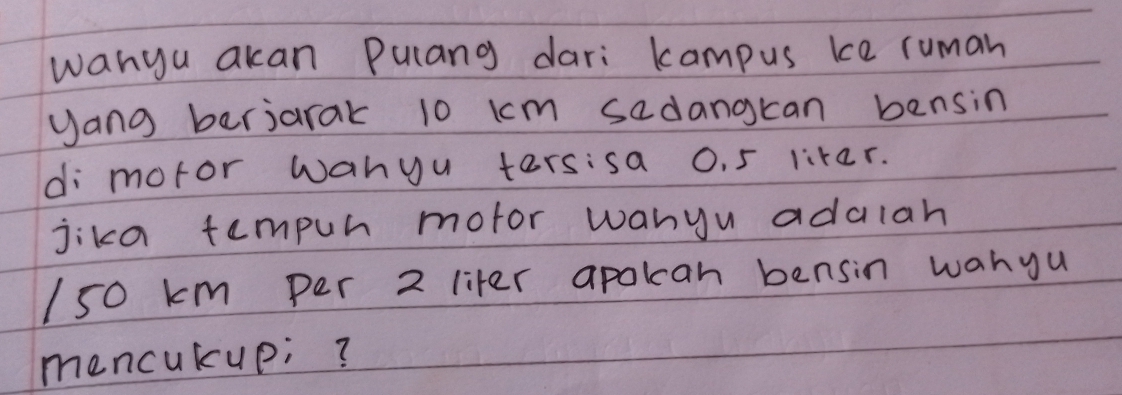 wahyu akan Pulang dari kampus ke rumah
yang berjarak 10 km sedangkan bensin
di motor wahyu tersisa 0.5 liter.
jika tempuh motor wahyu adalah
150 km per 2 liter apakah bensin wahyu
mencukupi ?